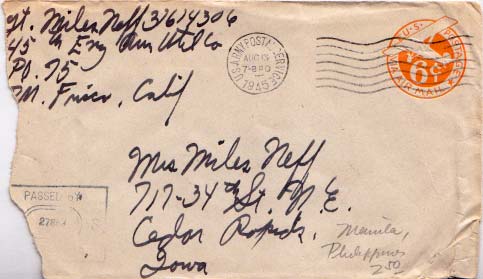 gt. Miles Neff 37674306
45th Eng Run Util Co
PO. 75
M. Frisco, Calif
U.S. ARMY POSTAL SERVICE
AUG 15
7-8 PM
1945
U.S. POSTAGE
6¢
VIA AIR MAIL
Mrs Miles Neff
717-34th St. N.E.
Cedar Rapids,
Iowa
Manila,
Philippines
2.50
PASSED BY